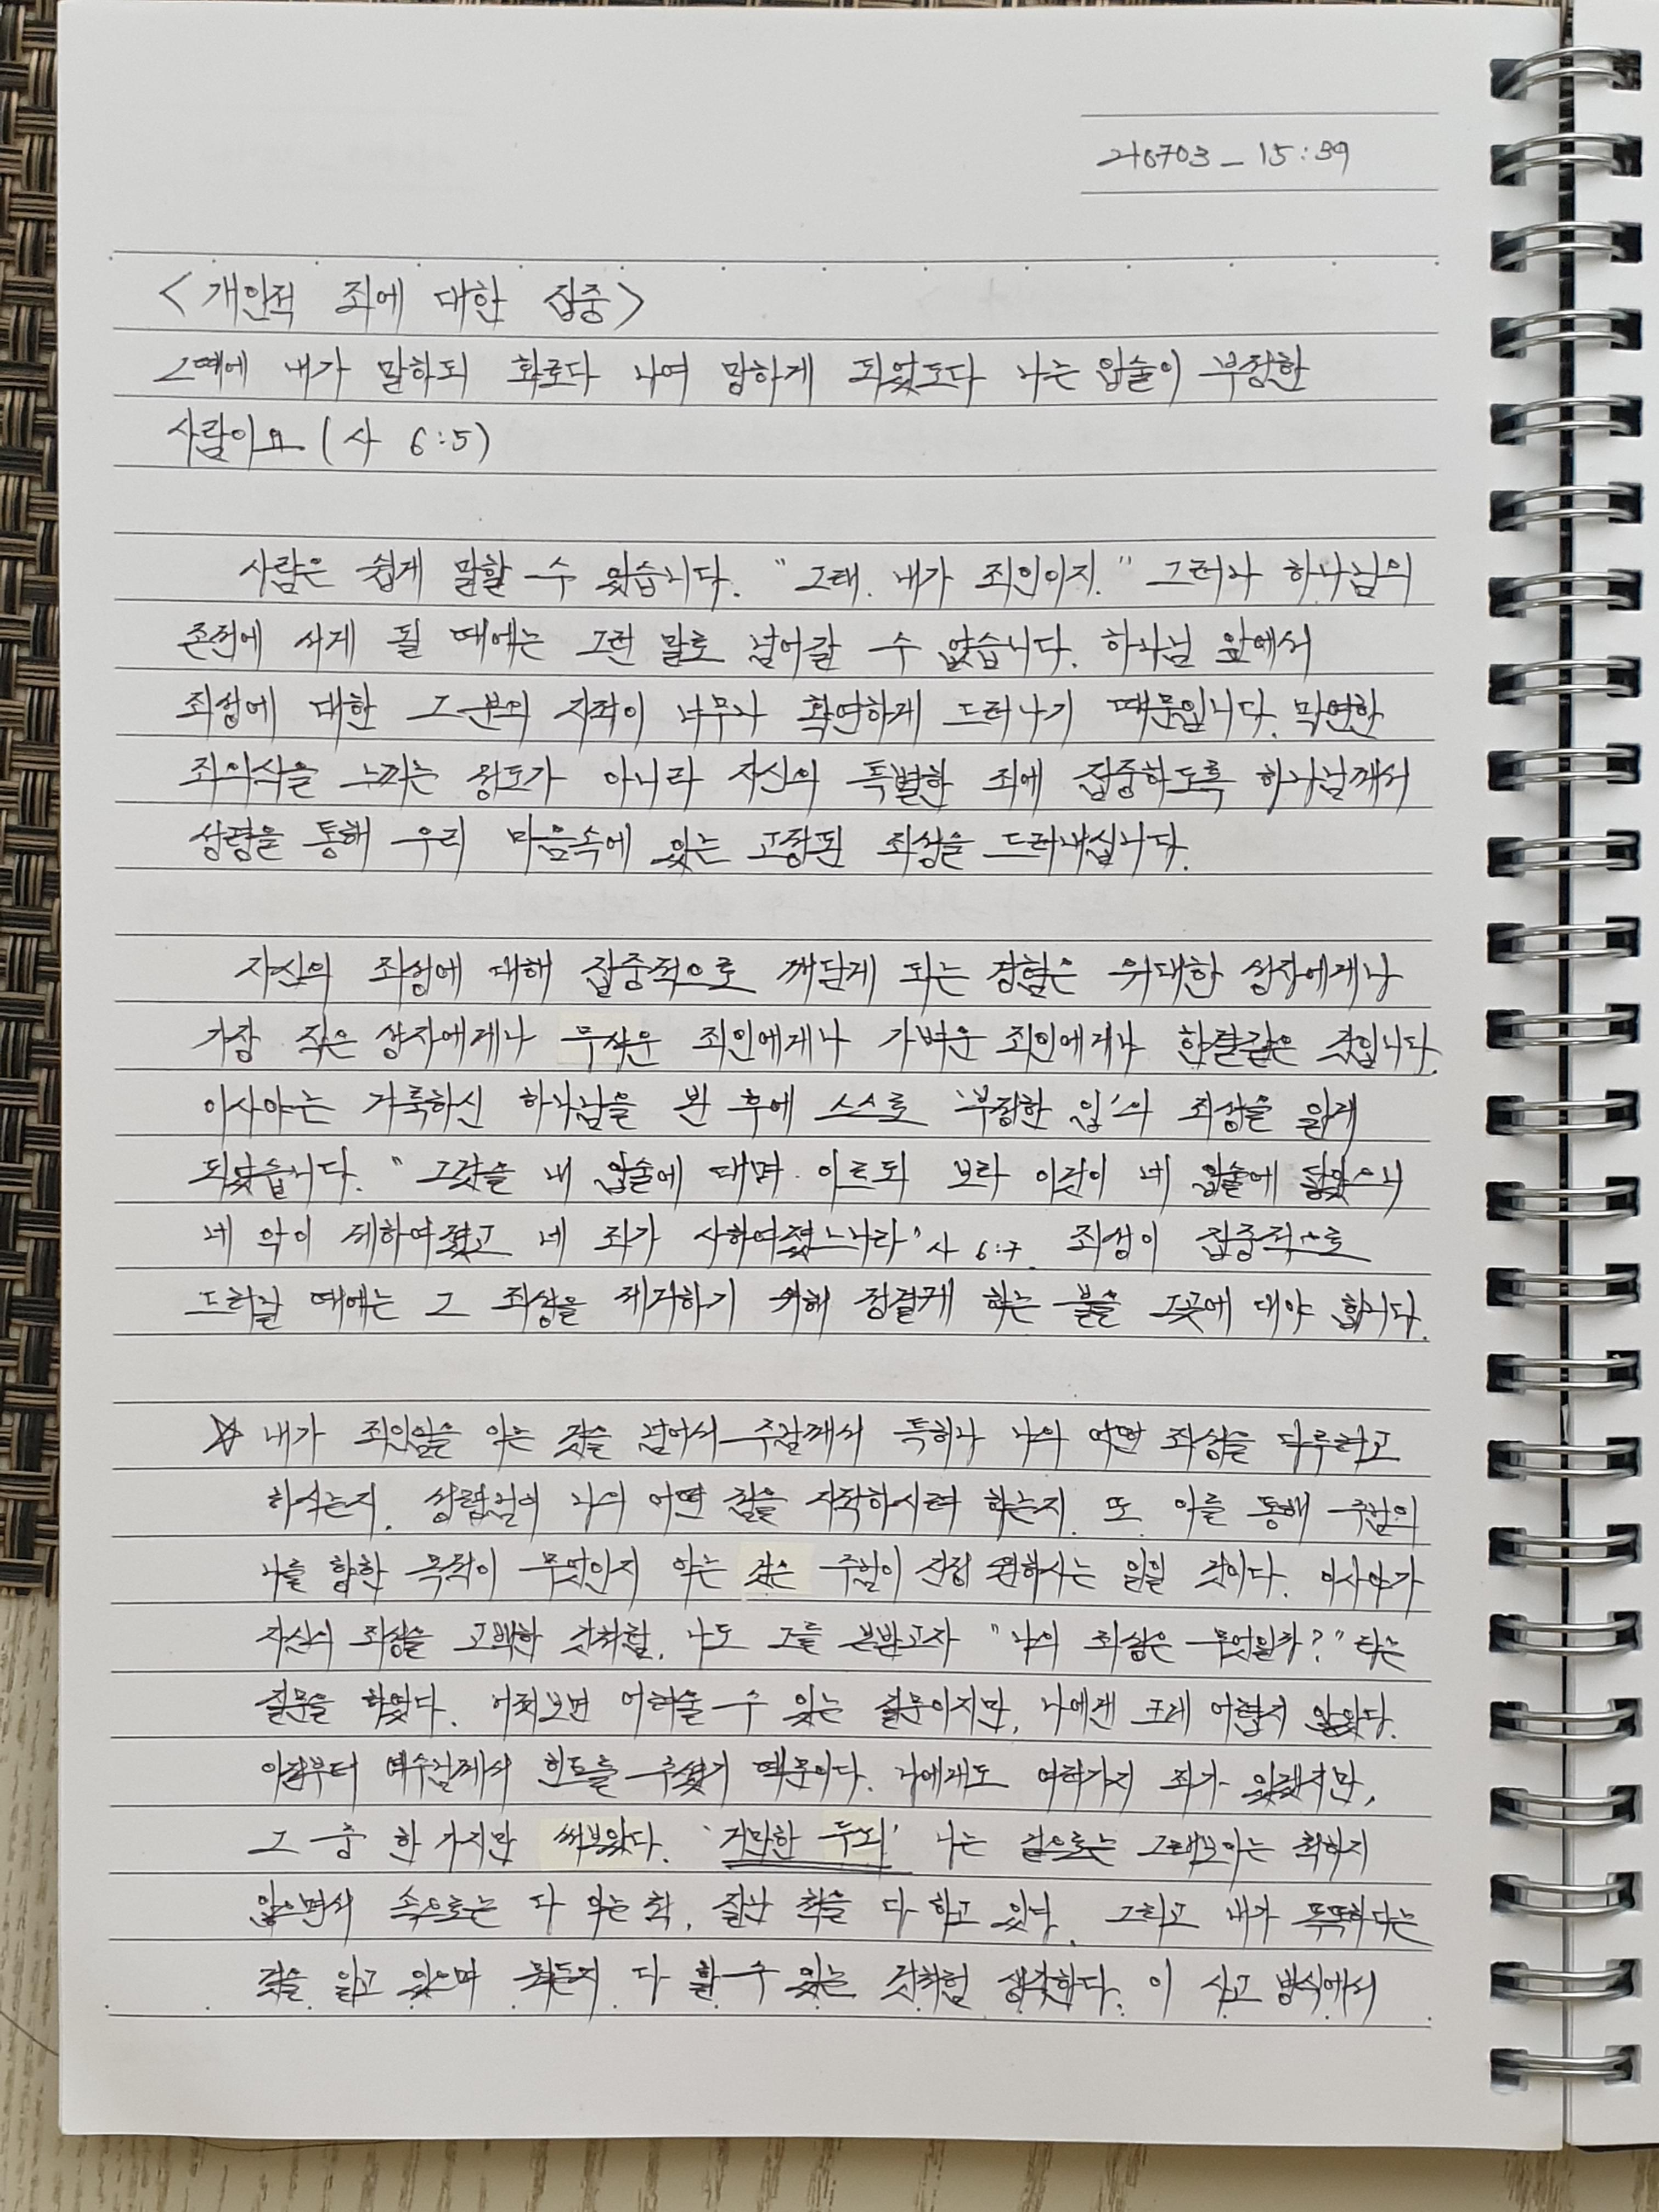 210703_15:39
<개인적 죄에 대한 집중>
그때에 내가 말하되 화로다 나여 망하게 되었도다 나는 입술이 부정한
사람이요 (사 6:5)
사람은 쉽게 말할 수 있습니다. "그래. 내가 죄인이지." 그러나 하나님의
존전에 서게 될 때에는 그런 말로 넘어갈 수 없습니다. 하나님 앞에서
죄성에 대한 그분의 지적이 너무나 확연하게 드러나기 때문입니다. 막연한
죄의식을 느끼는 정도가 아니라 자신의 특별한 죄에 집중하도록 하나님께서
성령을 통해 우리 마음속에 있는 고정된 죄성을 드러내십니다.
자신의 죄성에 대해 집중적으로 깨닫게 되는 경험은 위대한 성자에게나
가장 작은 성자에게나 무서운 죄인에게나 가벼운 죄인에게나 한결같은 것입니다.
이사야는 거룩하신 하나님을 본 후에 스스로 '부정한 입'의 죄성을 알게
되었습니다. "그것을 내 입술에 대며 이르되 보라 이것이 네 입술에 닿았으니
네 악이 제하여졌고 네 죄가 사하여졌느니라" 사 6:7. 죄성이 집중적으로
드러날 때에는 그 죄성을 제거하기 위해 정결케 하는 불을 그곳에 대야 합니다.
☆ 내가 죄인임을 아는 것을 넘어서 주님께서 특히나 나의 어떤 죄성을 다루려고
하시는지. 성령님이 나의 어떤 것을 지적하시려 하는지. 또 이를 통해 주님의
나를 향한 목적이 무엇인지 아는 것은 주님이 진정 원하시는 일일 것이다. 이사야가
자신의 죄성을 고백한 것처럼, 나도 그를 본받고자 "나의 죄성은 무엇일까?" 라는
질문을 하였다. 어찌보면 어려울 수 있는 질문이지만, 나에겐 크게 어렵지 않았다.
아침부터 예수님께서 힌트를 주셨기 때문이다. 나에게도 여러가지 죄가 있겠지만,
그 중 한 가지만 써보았다. '거만한 두뇌' 나는 겉으로는 그래보이는 척하지
않으면서 속으로는 다 아는 척, 잘난 척을 다 하고 있다. 그리고 내가 똑똑하다는
것을 알고 있으며 뭐든지 다 할 수 있는 것처럼 생각한다. 이 사고 방식에서